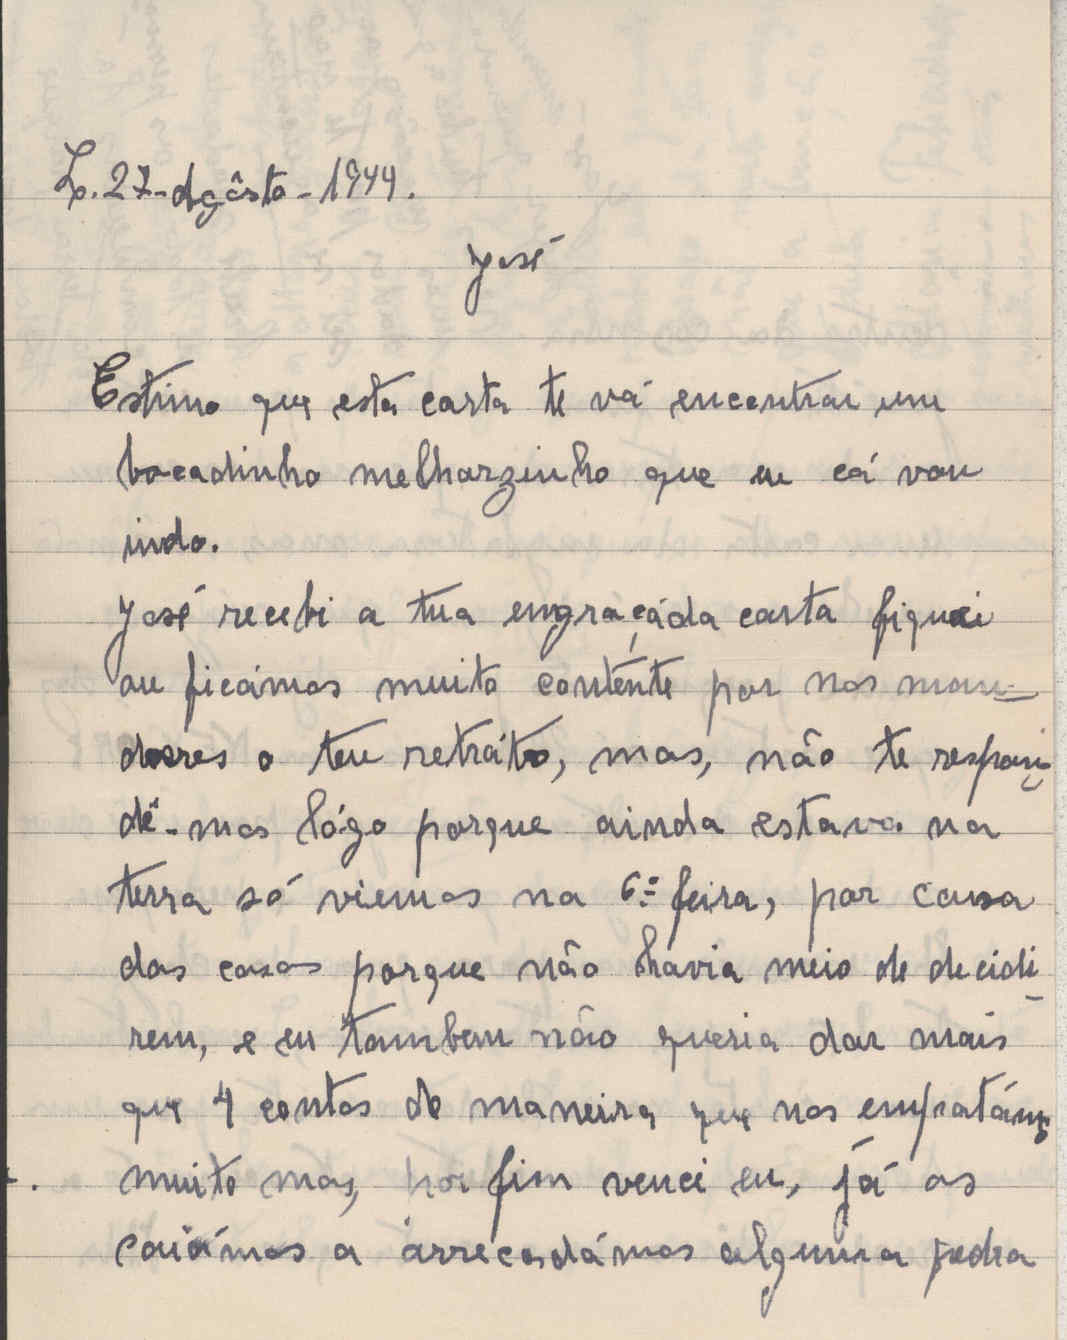 L. 27-Agôsto-1944.
José
Estimo que esta carta te vá encontrar um
bocadinho melhorzinho que eu cá vou
indo.
José recebi a tua engraçáda carta fiquei
ou ficámos muito conténte por nos man-
dares o teu retráto, mas, não te respon
dê-mos lógo porque ainda estava na
terra só viemos na 6ª feira, por causa
das casas porque não havia meio de decidi-
rem, e eu tambem não queria dar mais
que 4 contos de maneira que nos empatáms
muito mas, por fim venci eu, já as
caiámos a àrrecadámos alguma pedra